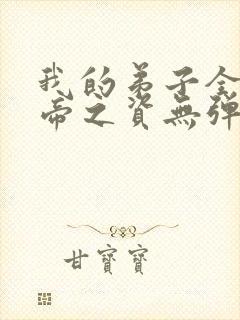 我的弟子全
帝之資無彈
甘寶寶